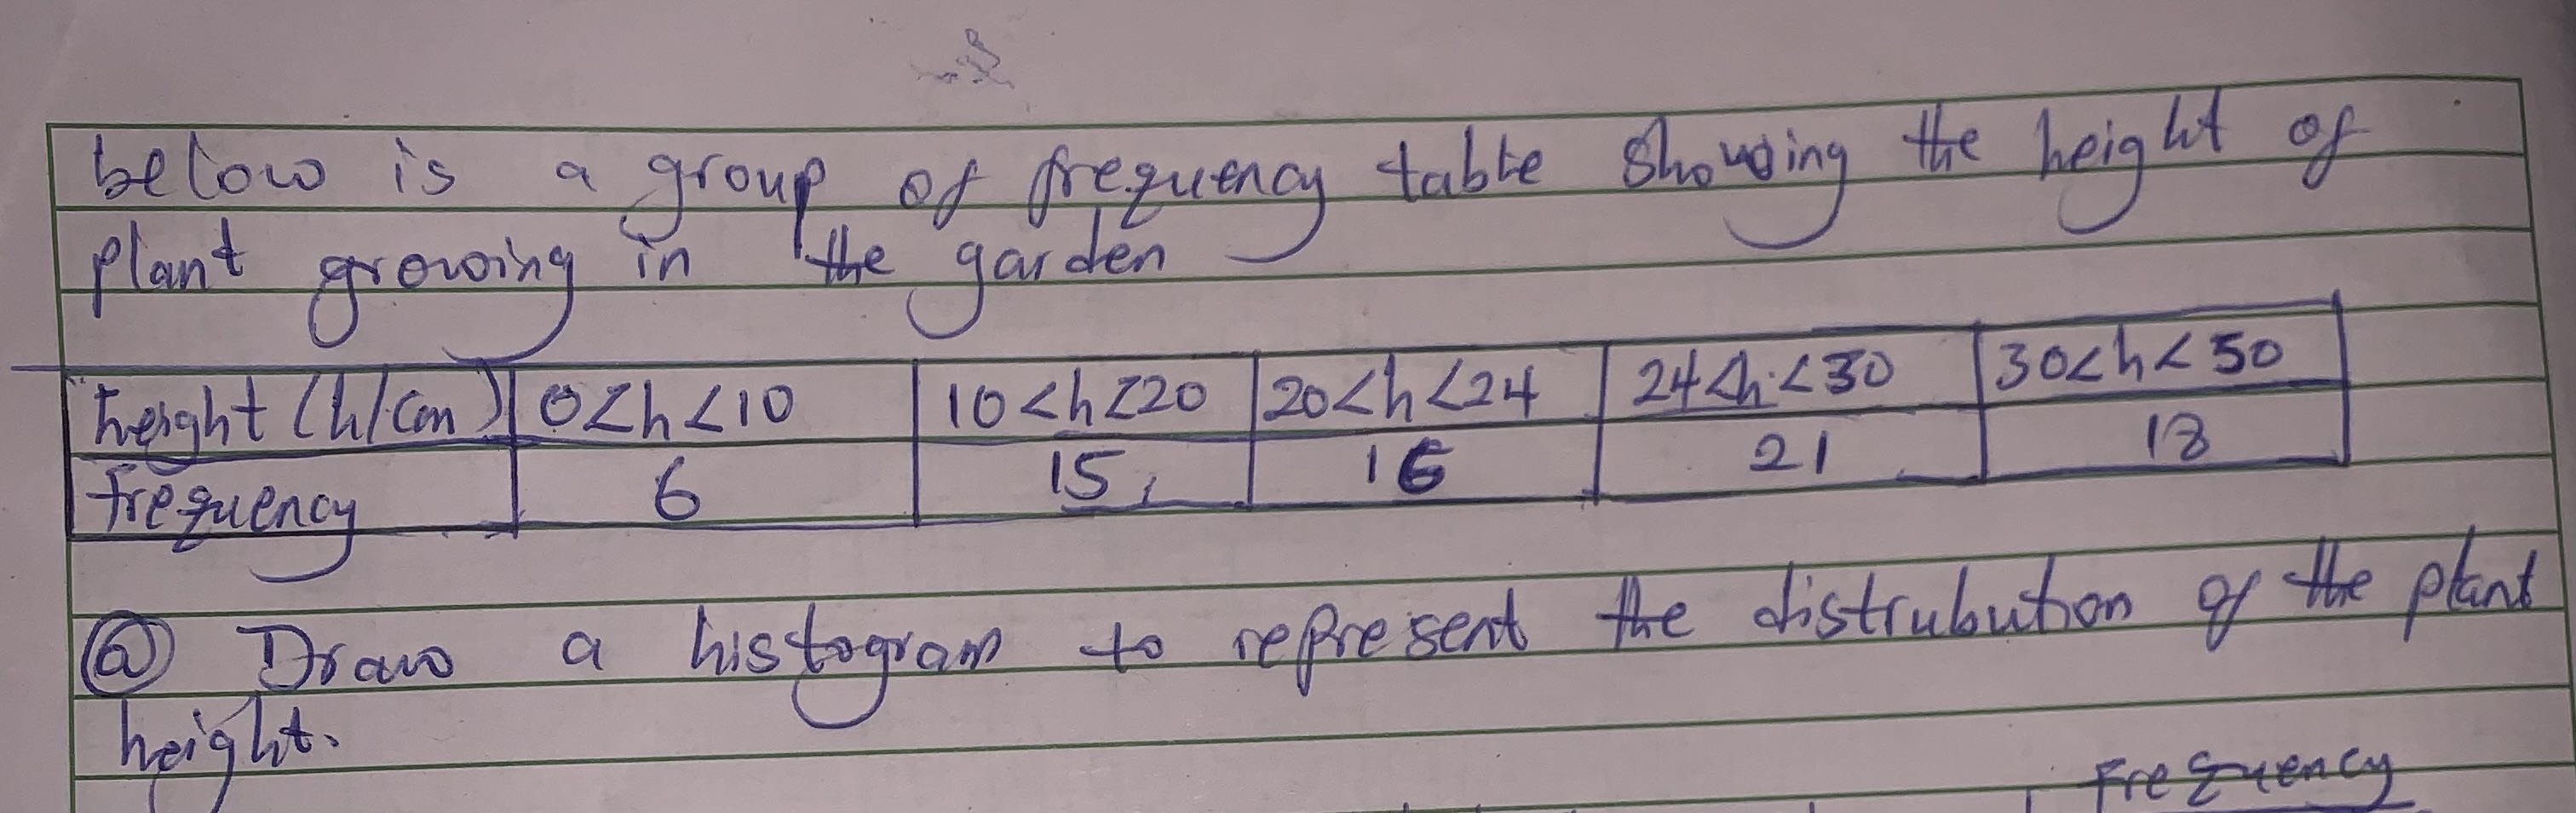 below is a group of frequency table showing the height of
plant growing in the garden
height (h/cm) 0<h<10 10<h<20 20<h<24 24<h<30 30<h<50
frequency 6 15 16 21 18
(a) Draw a histogram to represent the distrubution of the plant
height.
Frequency